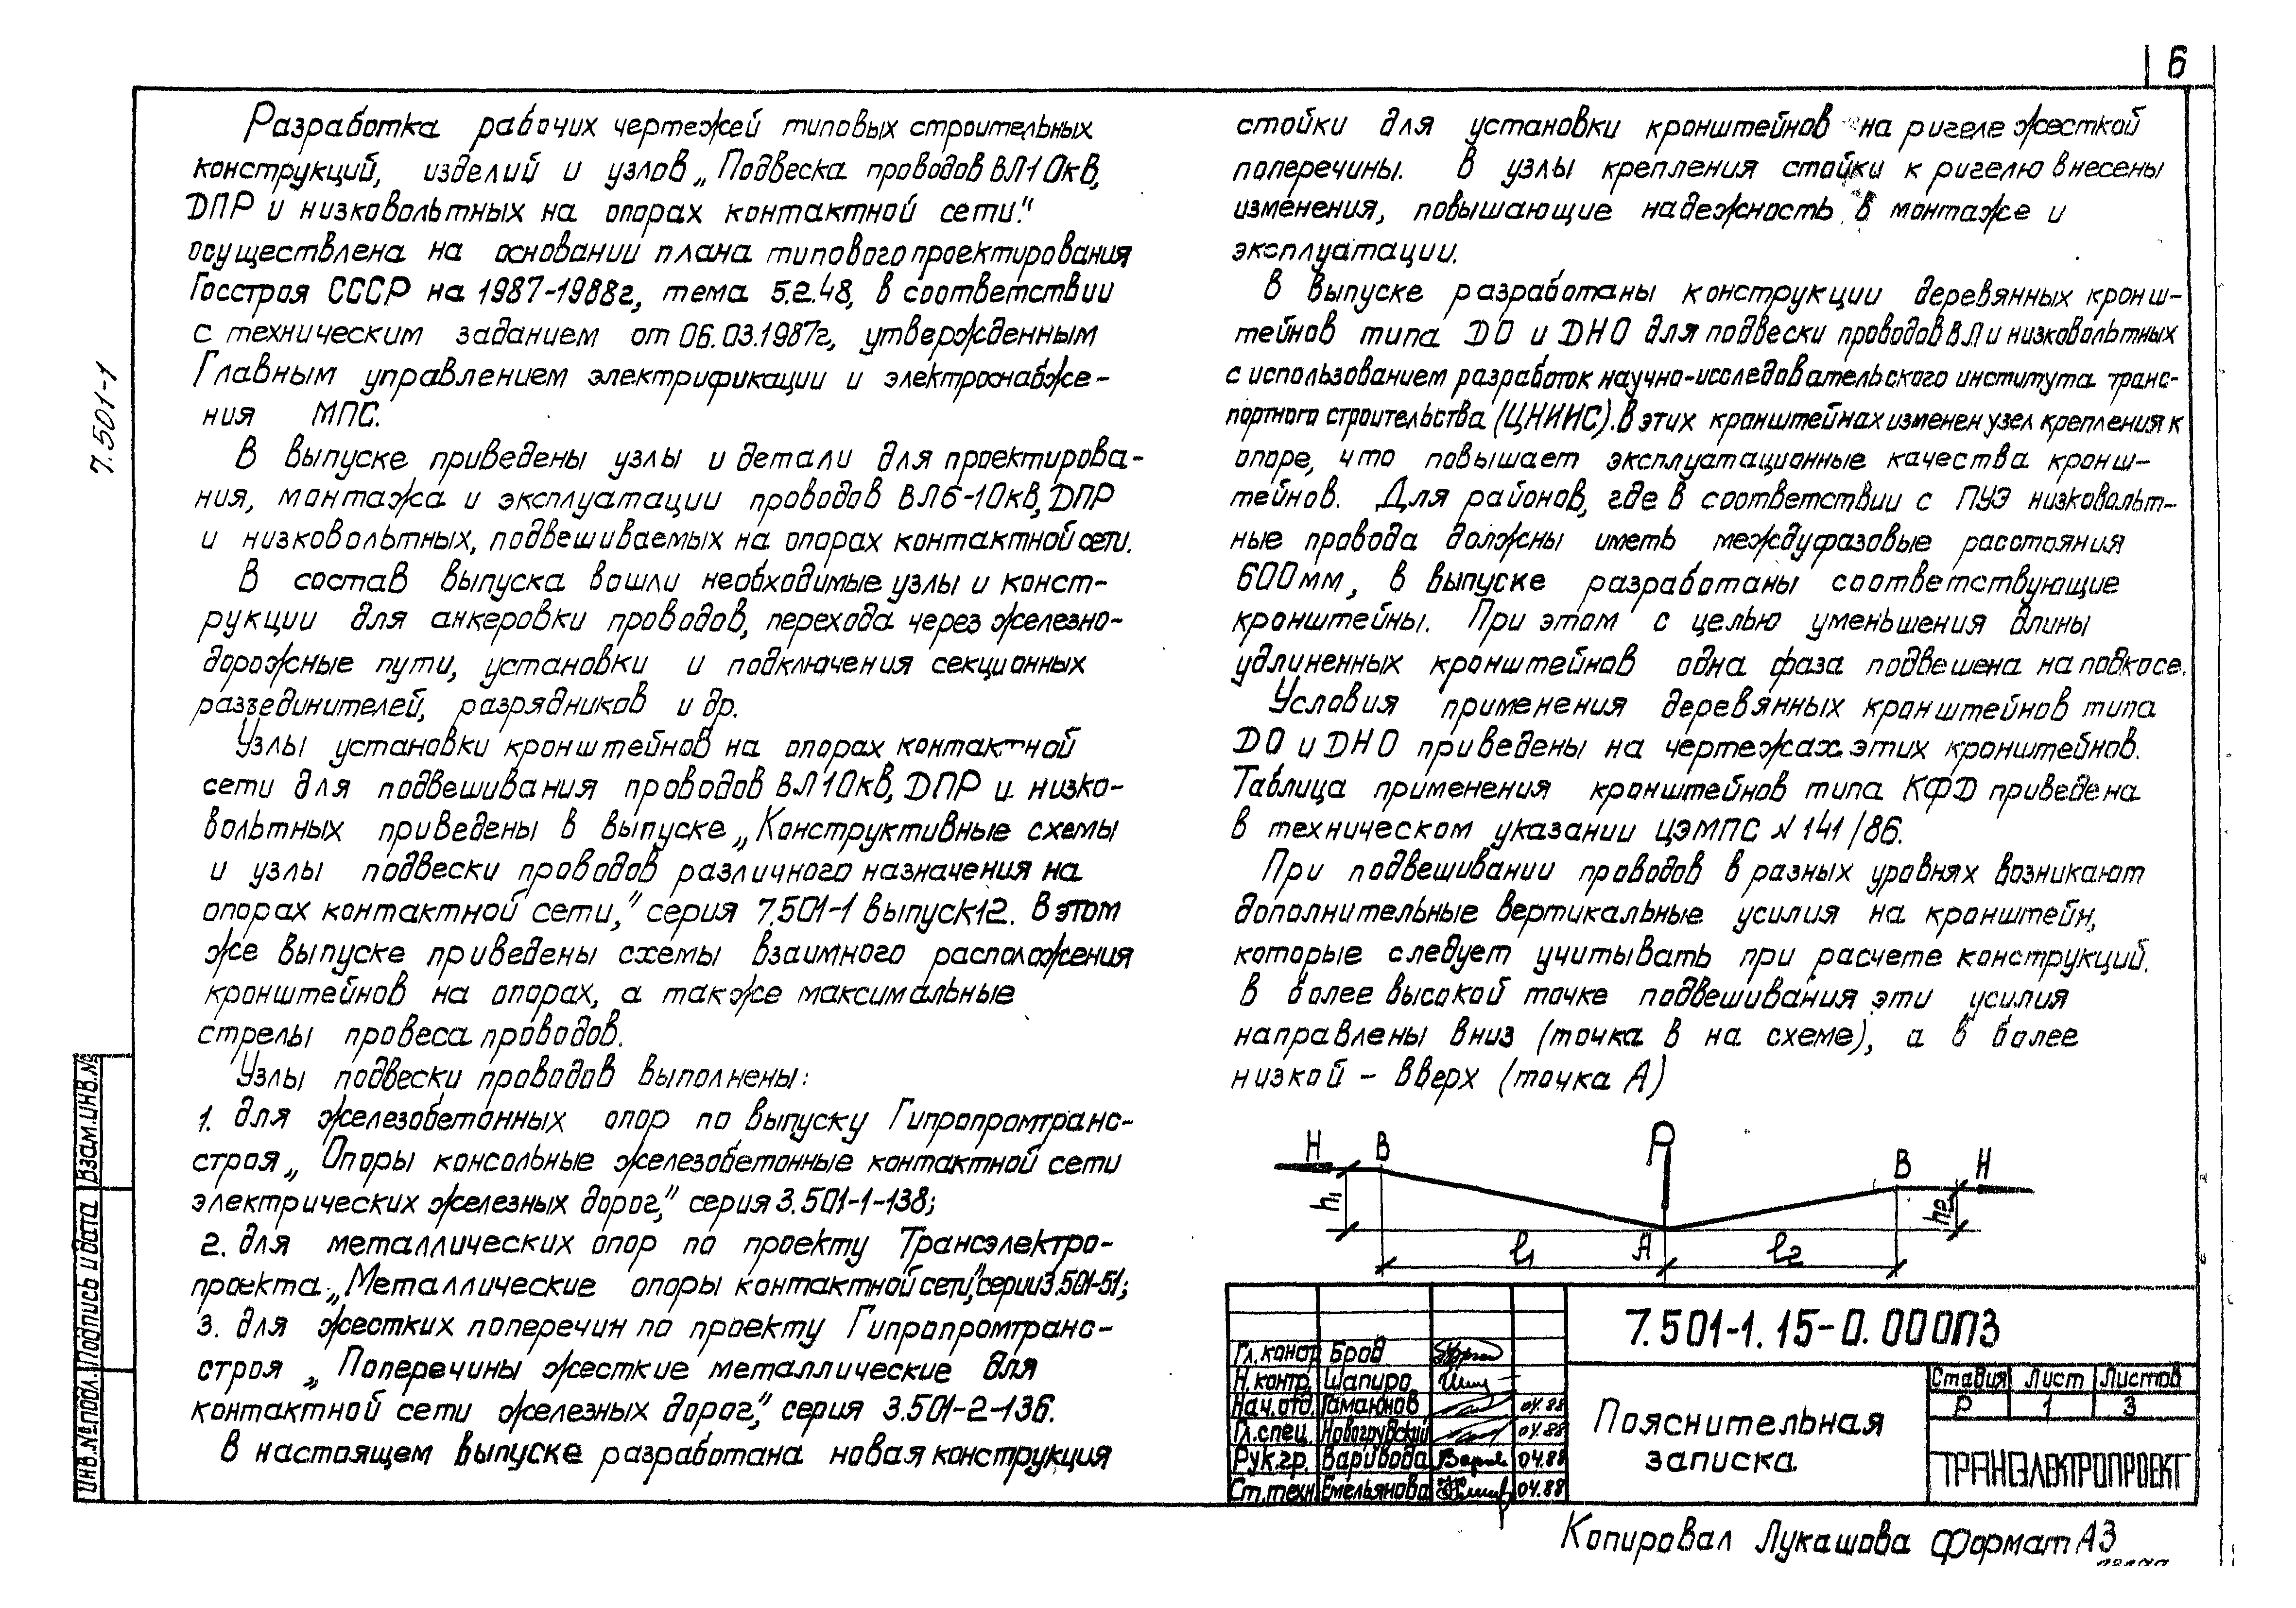 6
Разработка рабочих чертежей типовых строительных
конструкций, изделий и узлов „Подвеска проводов ВЛ10кВ,
ДПР и низковольтных на опорах контактной сети."
осуществлена на основании плана типового проектирования
Госстроя СССР на 1987-1988г, тема 5.2.48, в соответствии
с техническим заданием от 06.03.1987г, утвержденным
Главным управлением электрификации и электроснабже-
ния МПС.
В выпуске приведены узлы и детали для проектирова-
ния, монтажа и эксплуатации проводов ВЛ6-10кВ, ДПР
и низковольтных, подвешиваемых на опорах контактной сети.
В состав выпуска вошли необходимые узлы и конст-
рукции для анкеровки проводов, перехода через железно-
дорожные пути, установки и подключения секционных
разъединителей, разрядников и др.
Узлы установки кронштейнов на опорах контактной
сети для подвешивания проводов ВЛ10кВ, ДПР и низко-
вольтных приведены в выпуске „Конструктивные схемы
и узлы подвески проводов различного назначения на
опорах контактной сети," серия 7.501-1 выпуск12. В этом
же выпуске приведены схемы взаимного расположения
кронштейнов на опорах, а также максимальные
стрелы провеса проводов.
Узлы подвески проводов выполнены:
1. для железобетонных опор по выпуску Гипропромтранс-
строя „ Опоры консольные железобетонные контактной сети
электрических железных дорог," серия 3.501-1-138;
2. для металлических опор по проекту Трансэлектро-
проекта „Металлические опоры контактной сети," серии 3.501-51;
3. для жестких поперечин по проекту Гипропромтранс-
строя „ Поперечины жесткие металлические для
контактной сети железных дорог," серия 3.501-2-136.
В настоящем выпуске разработана новая конструкция
стойки для установки кронштейнов на ригеле жесткой
поперечины. В узлы крепления стойки к ригелю внесены
изменения, повышающие надежность в монтаже и
эксплуатации.
В выпуске разработаны конструкции деревянных кронш-
тейнов типа ДО и ДНО для подвески проводов ВЛ и низковольтных
с использованием разработок научно-исследовательского института транс-
портного строительства (ЦНИИС). В этих кронштейнах изменен узел крепления к
опоре, что повышает эксплуатационные качества кронш-
тейнов. Для районов, где в соответствии с ПУЭ низковольт-
ные провода должны иметь междуфазовые расстояния
600мм, в выпуске разработаны соответствующие
кронштейны. При этом с целью уменьшения длины
удлиненных кронштейнов одна фаза подвешена на подкосе.
Условия применения деревянных кронштейнов типа
ДО и ДНО приведены на чертежах этих кронштейнов.
Таблица применения кронштейнов типа КФД приведена
в техническом указании ЦЭМПС N 141/86.
При подвешивании проводов в разных уровнях возникают
дополнительные вертикальные усилия на кронштейн,
которые следует учитывать при расчете конструкций.
В более высокой точке подвешивания эти усилия
направлены вниз (точка В на схеме), а в более
низкой - вверх (точка А)
Н В Р В Н
h1 h2
l1 А l2
7.501-1.15-0.000ПЗ
Гл. констр Брод
Н. контр. Шапиро
Нач. отд. Гамаюнов 04.88
Гл. спец. Новогрудский 04.88
Рук. гр. Варивода 04.88
Ст. техн Емельянова 04.88
Пояснительная
записка
Стадия Лист Листов
Р 1 3
ТРАНСЭЛЕКТРОПРОЕКТ
Копировал Лукашова Формат А3
7.501-1
Инв.№подл. Подпись и дата Взам.инв.№